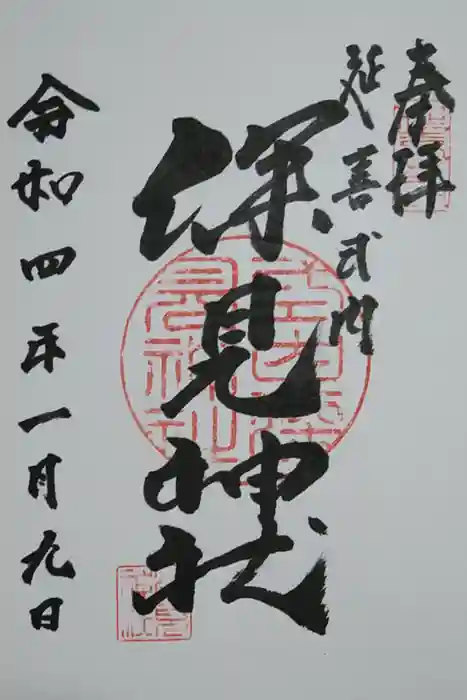 奉拝
延喜式内
深見神社
令和四年一月九日